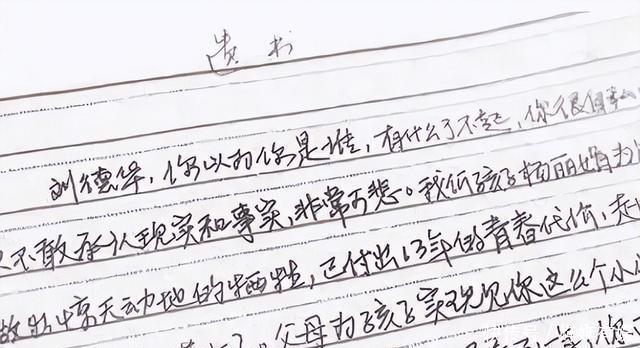 遗书
刘德华,你以为你是谁,有什么了不起,你很自
不敢承认现实和事实,非常可悲。我你孩子杨丽娟为
做出惊天动地的牺牲,已付出13年的青春代价,走
父母为孩子实现见你这么个小